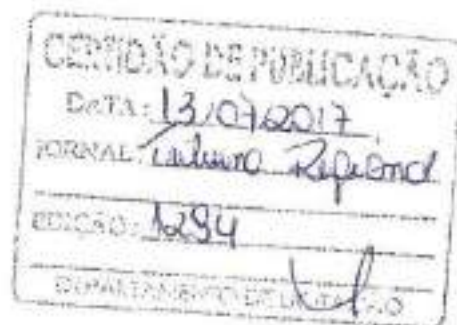 CERTIDÃO DE PUBLICAÇÃO
DATA: 13/07/2017
JORNAL: Tribuna Regional
EDIÇÃO: 1294
DEPARTAMENTO DE LICITAÇÃO